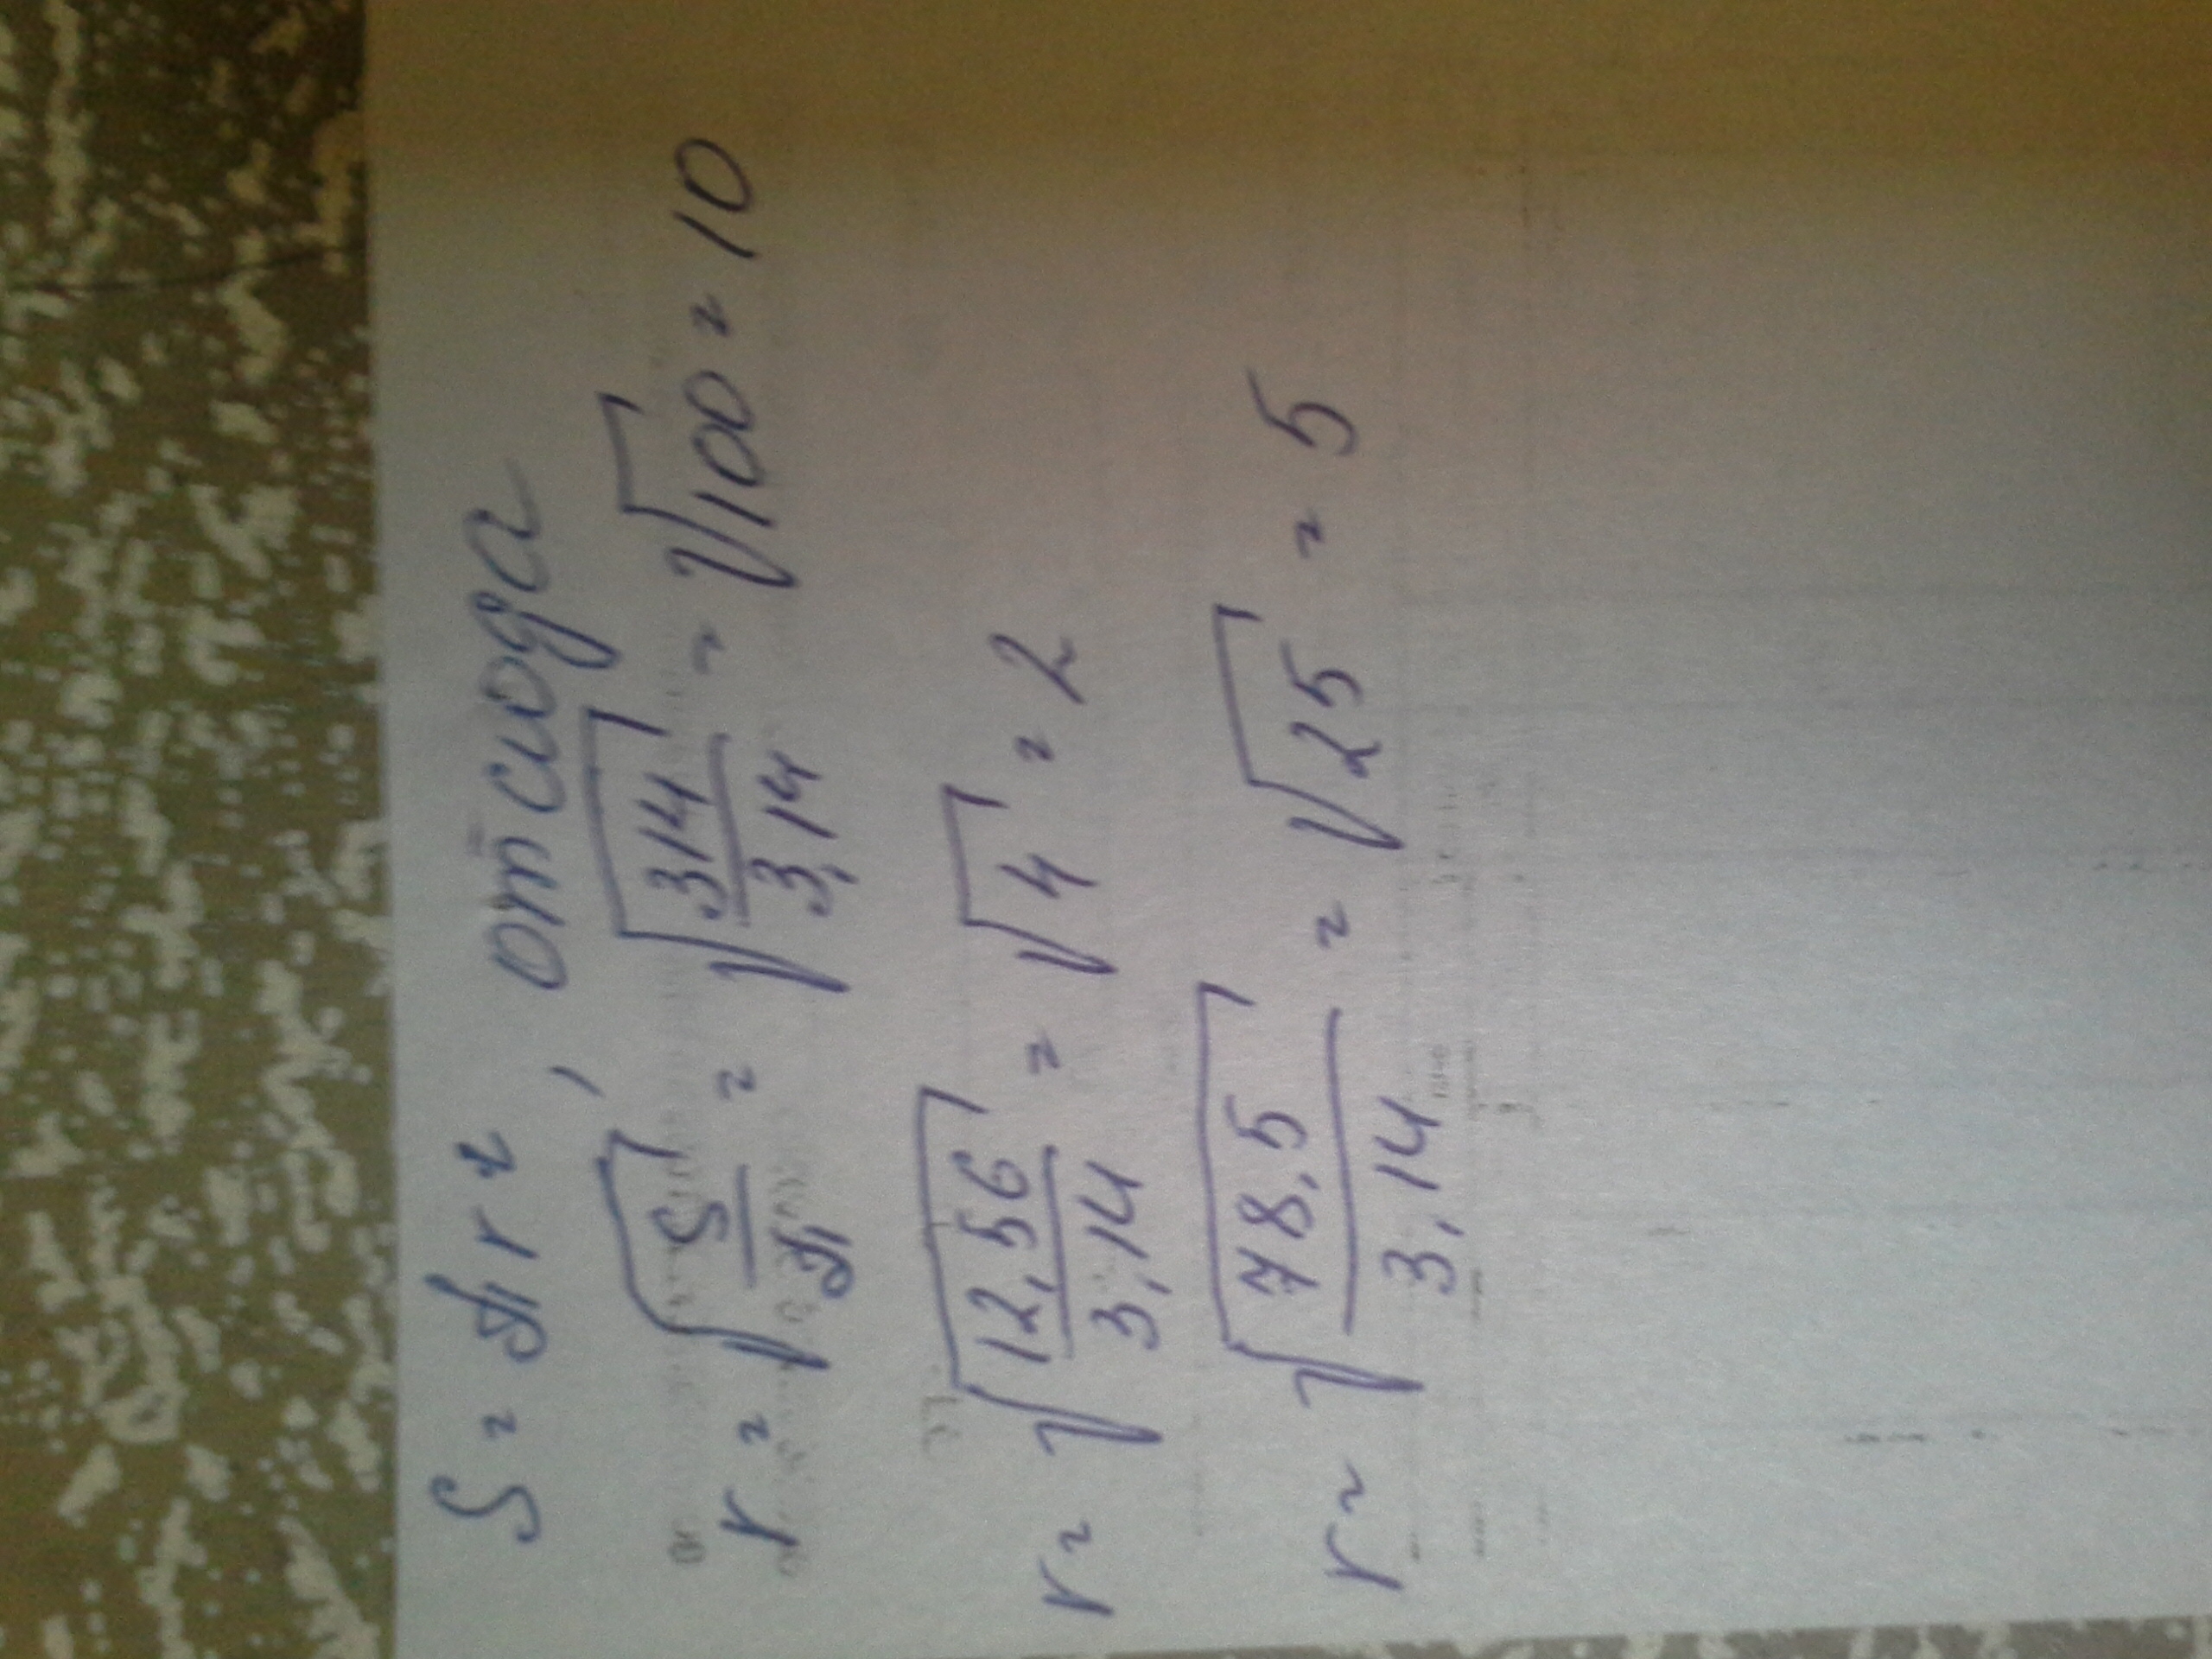 S = πr², отсюда
r = √(S/π) = √(314/3,14) = √100 = 10
r = √(12,56/3,14) = √4 = 2
r = √(78,5/3,14) = √25 = 5